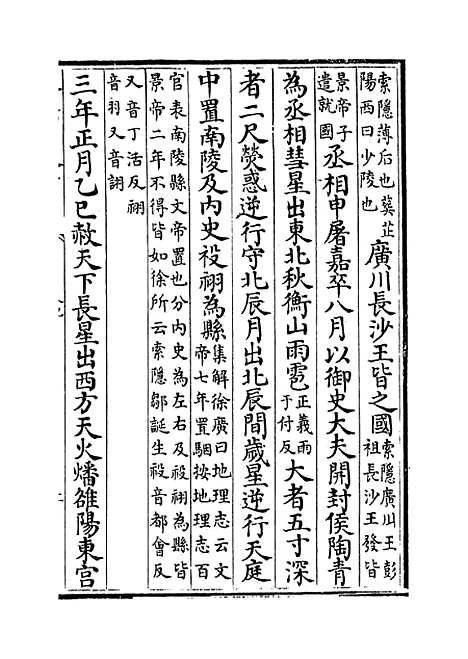 索隱薄后也葬芷
陽西曰少陵也
廣川長沙王皆之國
索隱廣川王彭
祖長沙王發皆
景帝子
遣就國
丞相申屠嘉卒八月以御史大夫開封侯陶青
為丞相彗星出東北秋衡山雨雹
正義雨
于付反
大者五寸深
者二尺熒惑逆行守北辰月出北辰間歲星逆行天庭
中置南陵及内史祋祤為縣
集解徐廣曰地理志云文
帝七年置駰按地理志百
官表南陵縣文帝置也分内史為左右及祋祤為縣皆
景帝二年不得皆如徐所云索隱鄒誕生祋音都會反
又音丁活反祤
音羽又音詡
三年正月乙巳赦天下長星出西方天火燔雒陽東宫